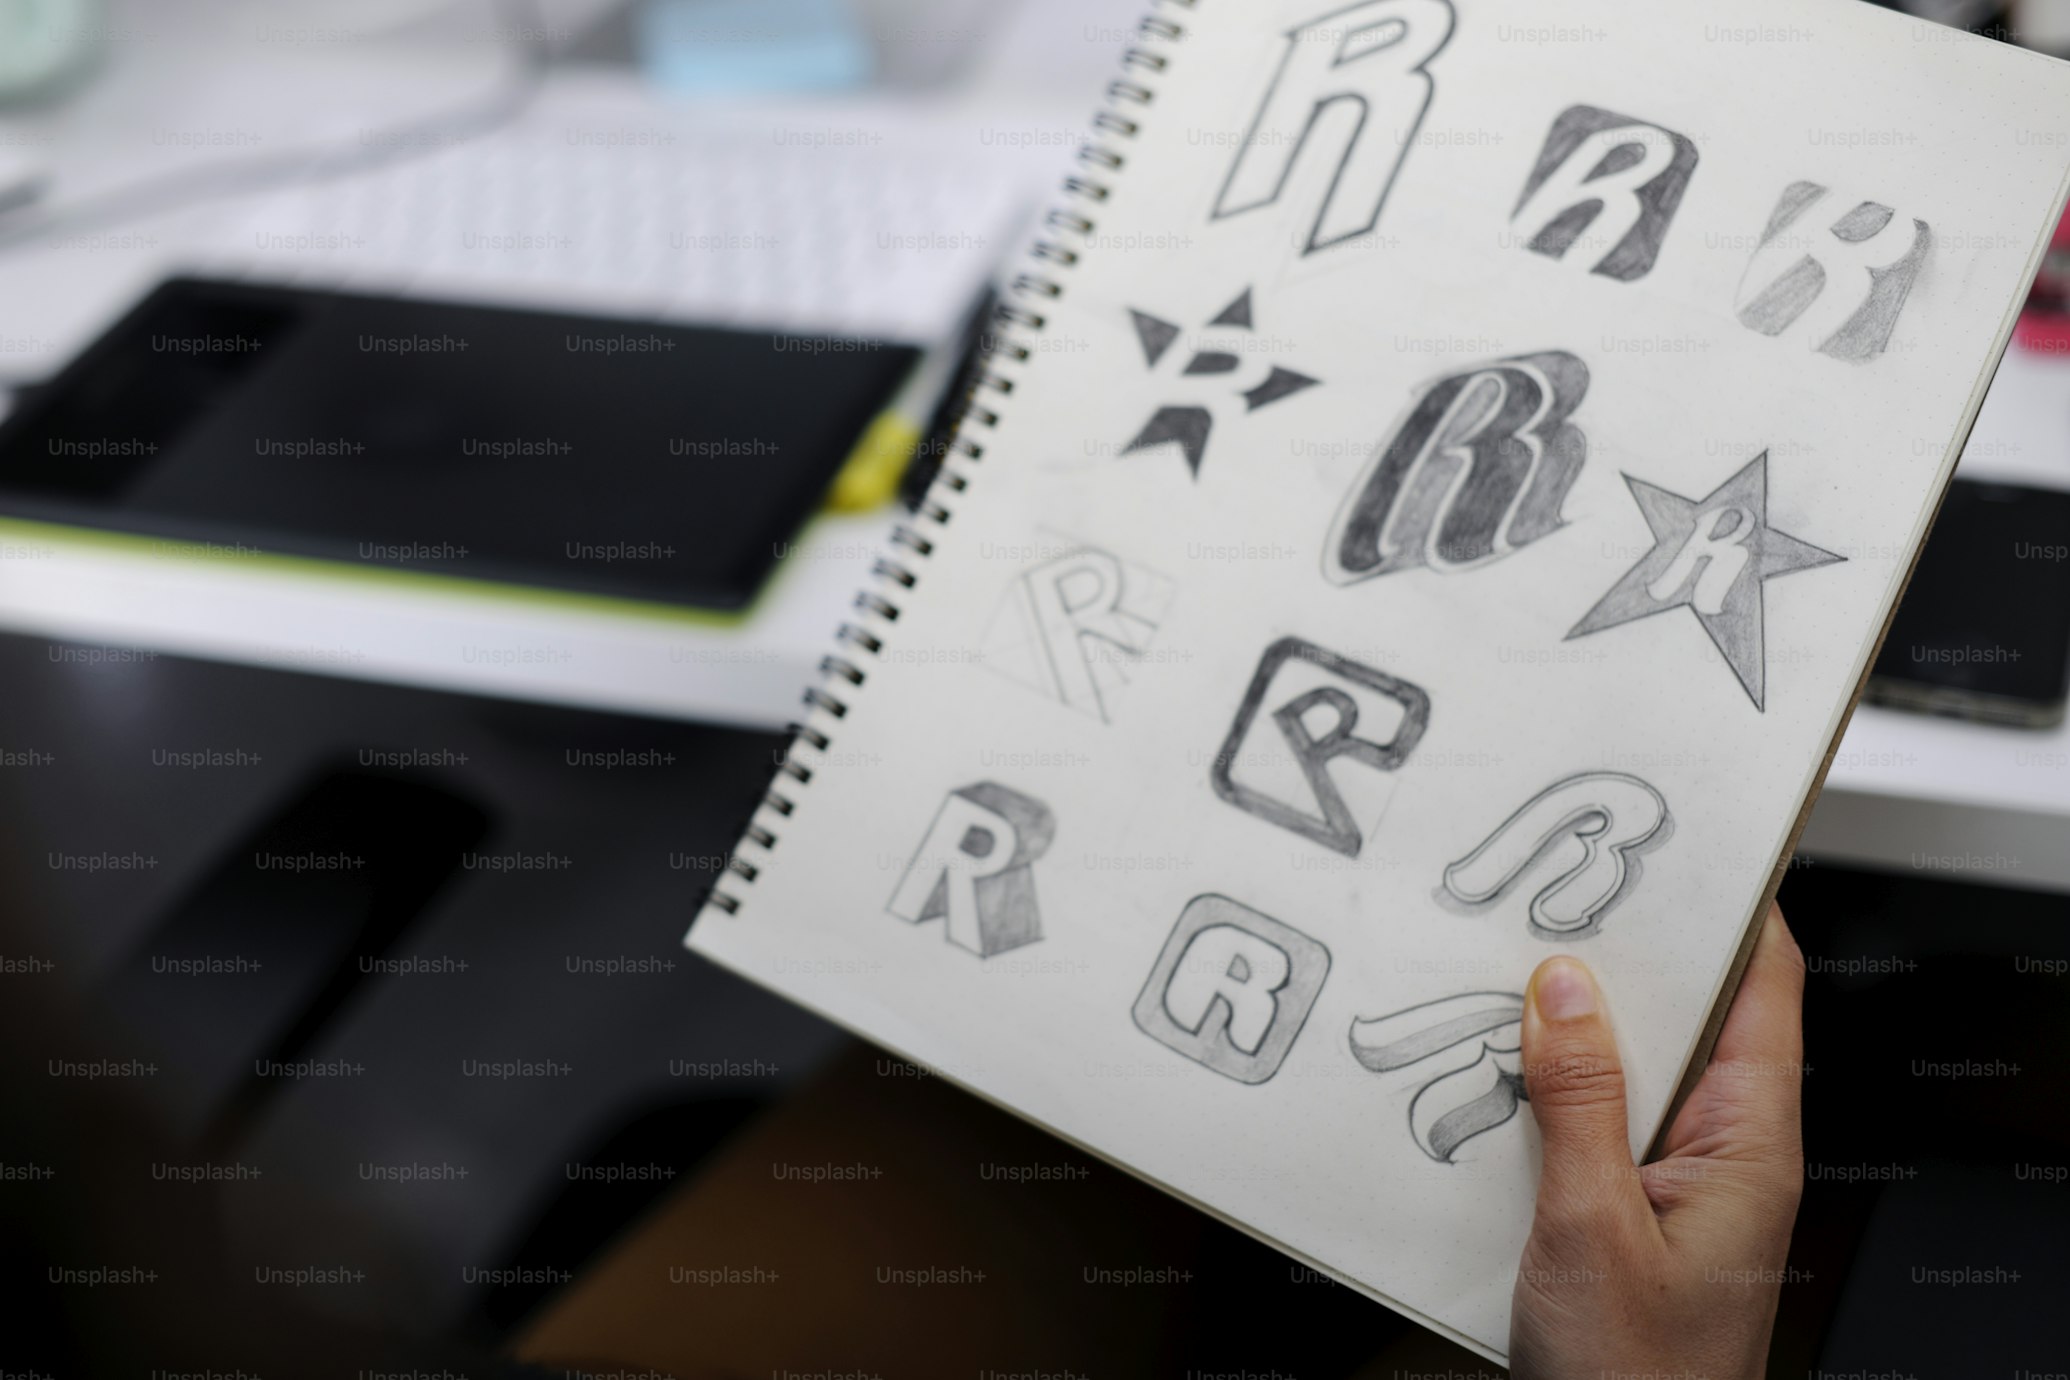 R
R
R
R
R
R
R
R
R
R
R
R
Unsplash+